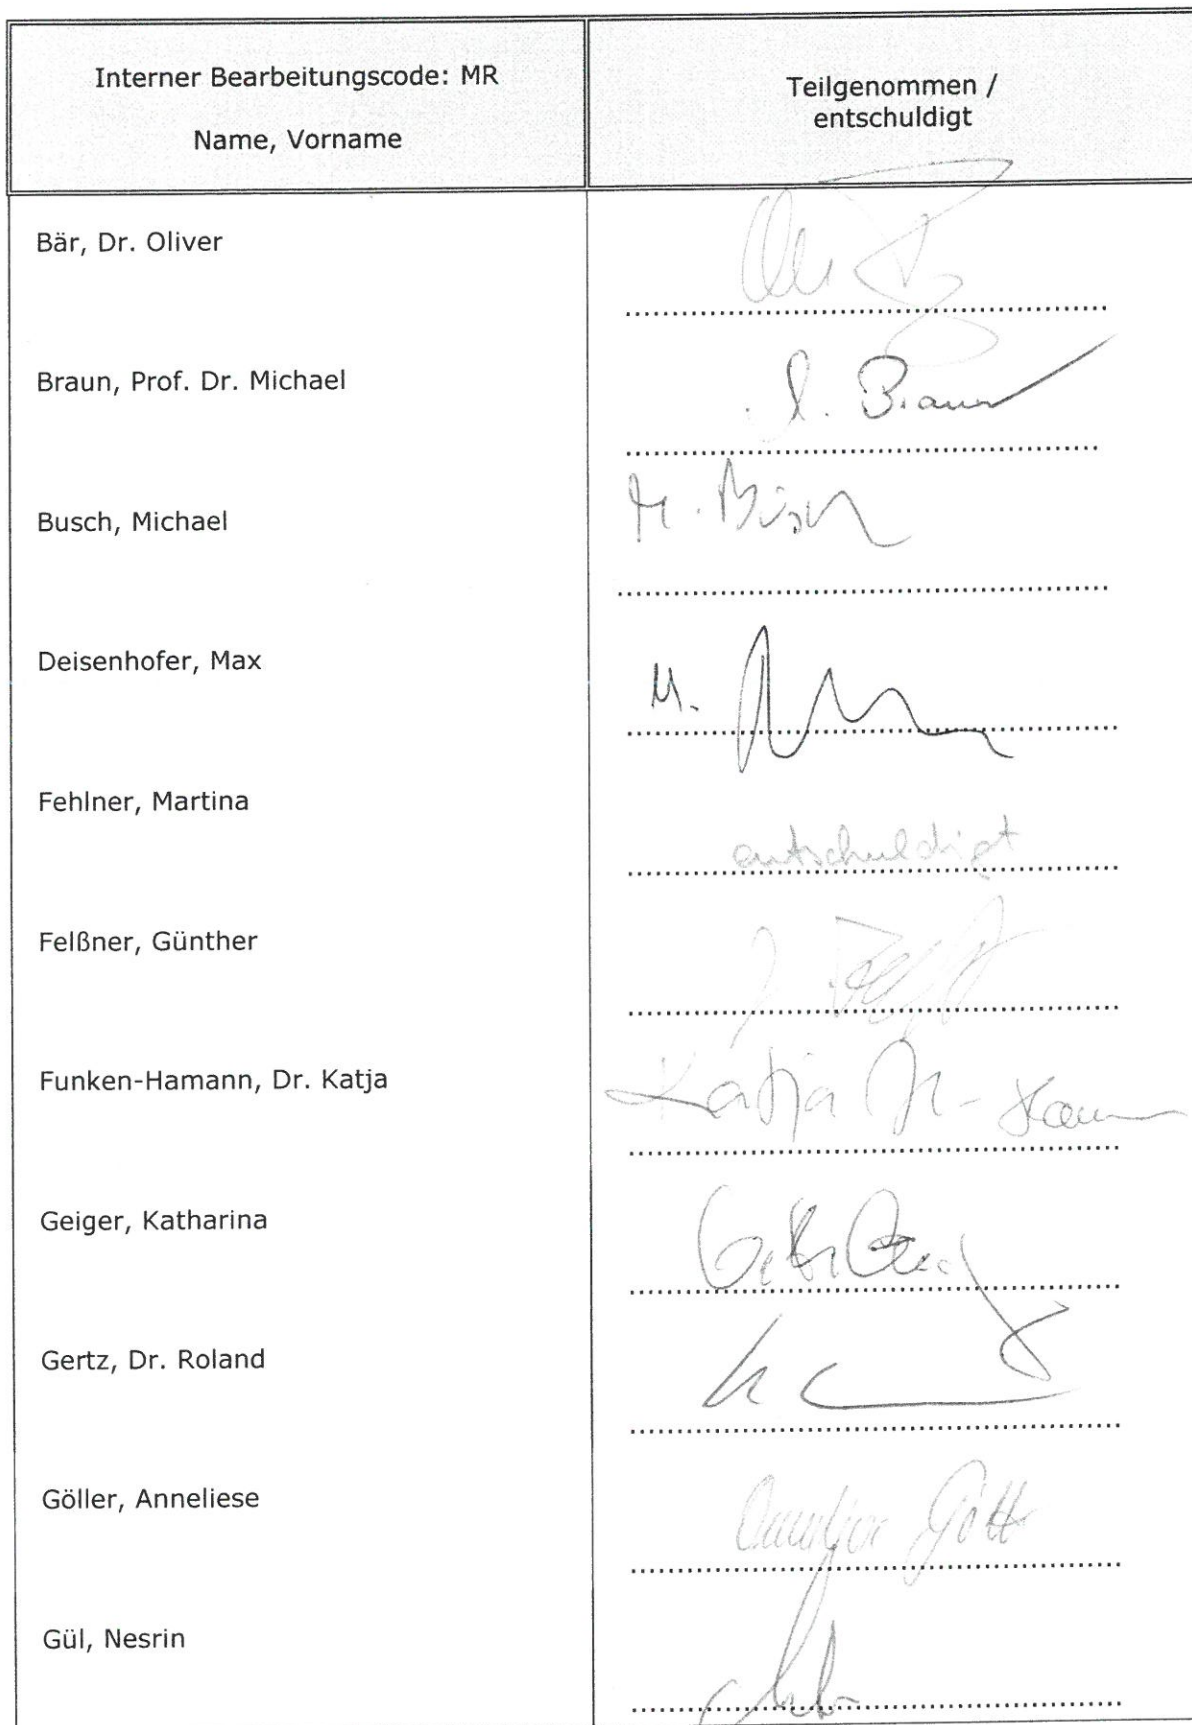 Interner Bearbeitungscode: MR
Name, Vorname
Teilgenommen /
entschuldigt
Bär, Dr. Oliver
Braun, Prof. Dr. Michael
M. Braun
Busch, Michael
M. Busch
Deisenhofer, Max
M.
Fehlner, Martina
entschuldigt
Felßner, Günther
Funken-Hamann, Dr. Katja
Katja
Geiger, Katharina
Gertz, Dr. Roland
Göller, Anneliese
Gül, Nesrin